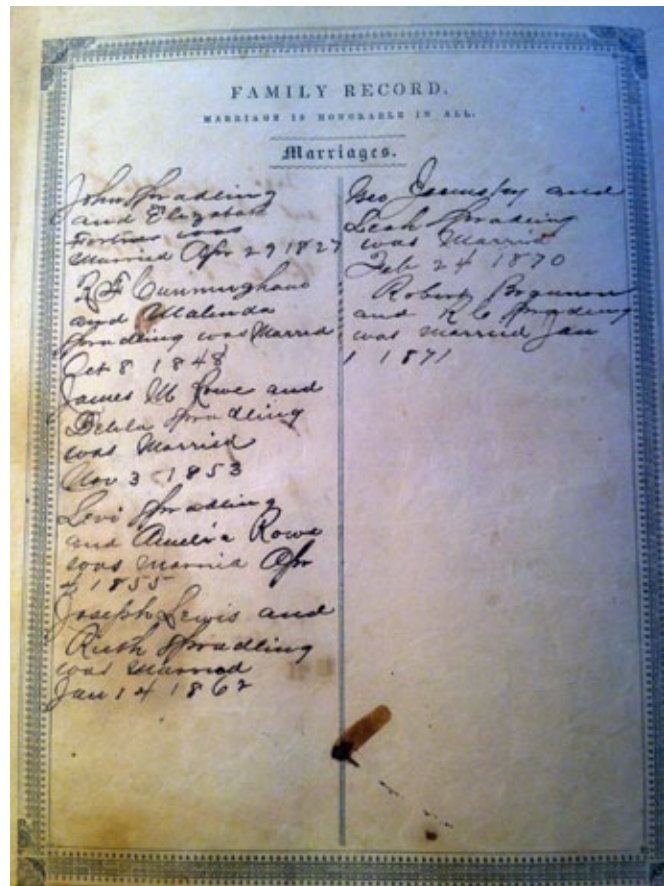 FAMILY RECORD.
MARRIAGE IS HONORABLE IN ALL.
Marriages.
John Spradling
and Elizabeth
was
Married Apr 29 1827
R F Cunningham
and Malinda
Spradling was Married
Oct 8 1848
James M Rowe and
Delila Spradling
was Married
Nov 3 1853
Levi Spradling
and Amelia Rowe
was Married Apr
4 1855
Joseph Lewis and
Ruth Spradling
was Married
Jan 14 1862
Geo and
Leah Spradling
was Married
Feb 24 1870
Robert
and R C Spradling
was married Jan
1 1871